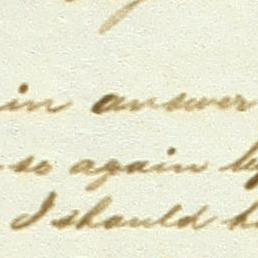 in answer
so again by
I should h